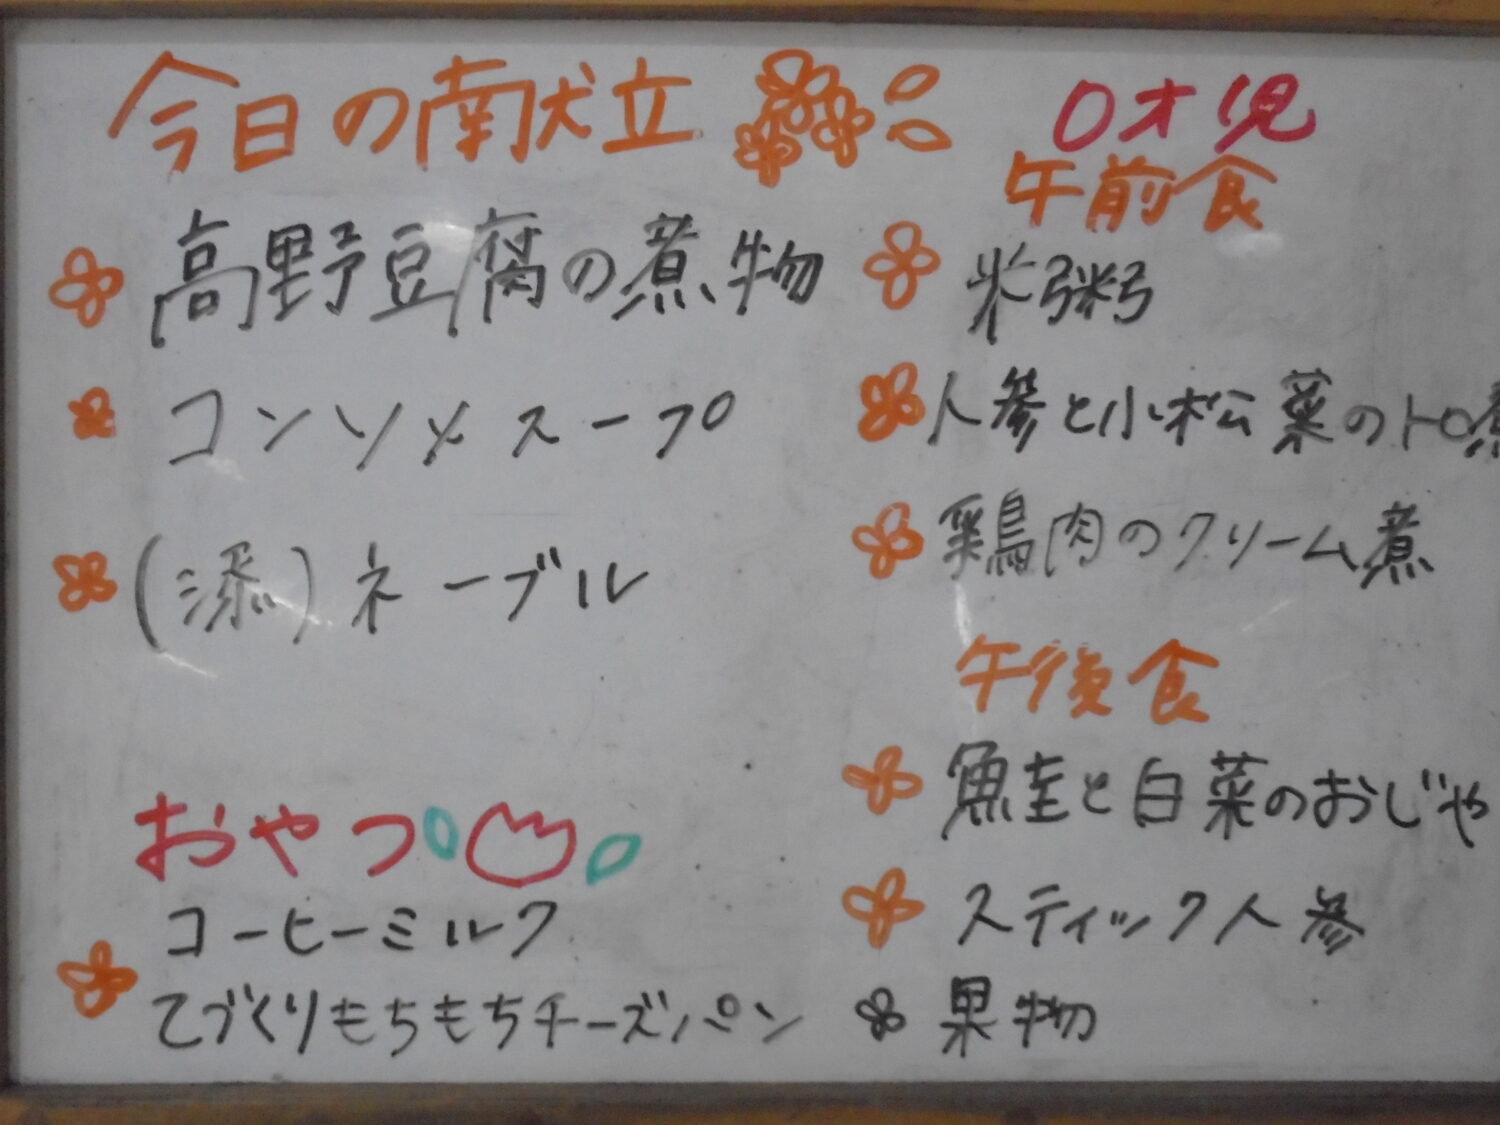 今日の献立
高野豆腐の煮物
コンソメスープ
(添)ネーブル
おやつ
コーヒーミルク
てづくりもちもちチーズパン
0才児
午前食
米粥
人参と小松菜のトロ煮
鶏肉のクリーム煮
午後食
鮭と白菜のおじや
スティック人参
果物